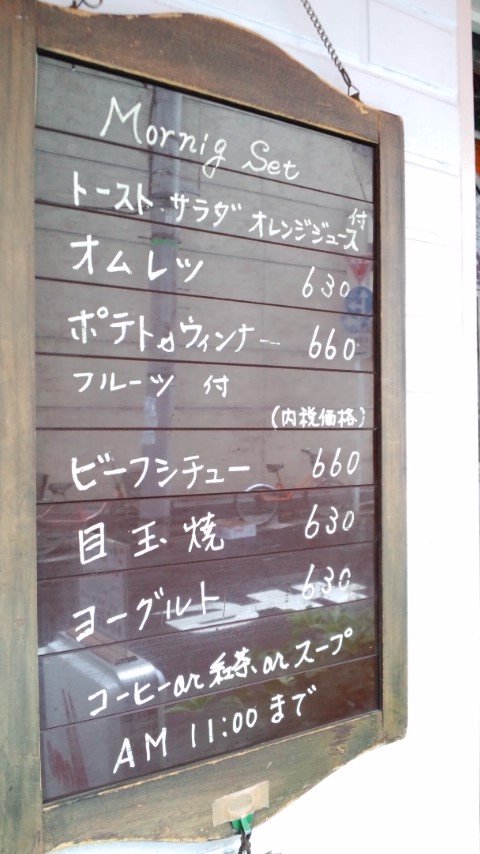 Mornig Set
トースト サラダ オレンジジュース付
オムレツ 630
ポテト&ウィンナー 660
フルーツ 付
(内税価格)
ビーフシチュー 660
目玉焼 630
ヨーグルト 630
コーヒーor紅茶orスープ
AM 11:00まで